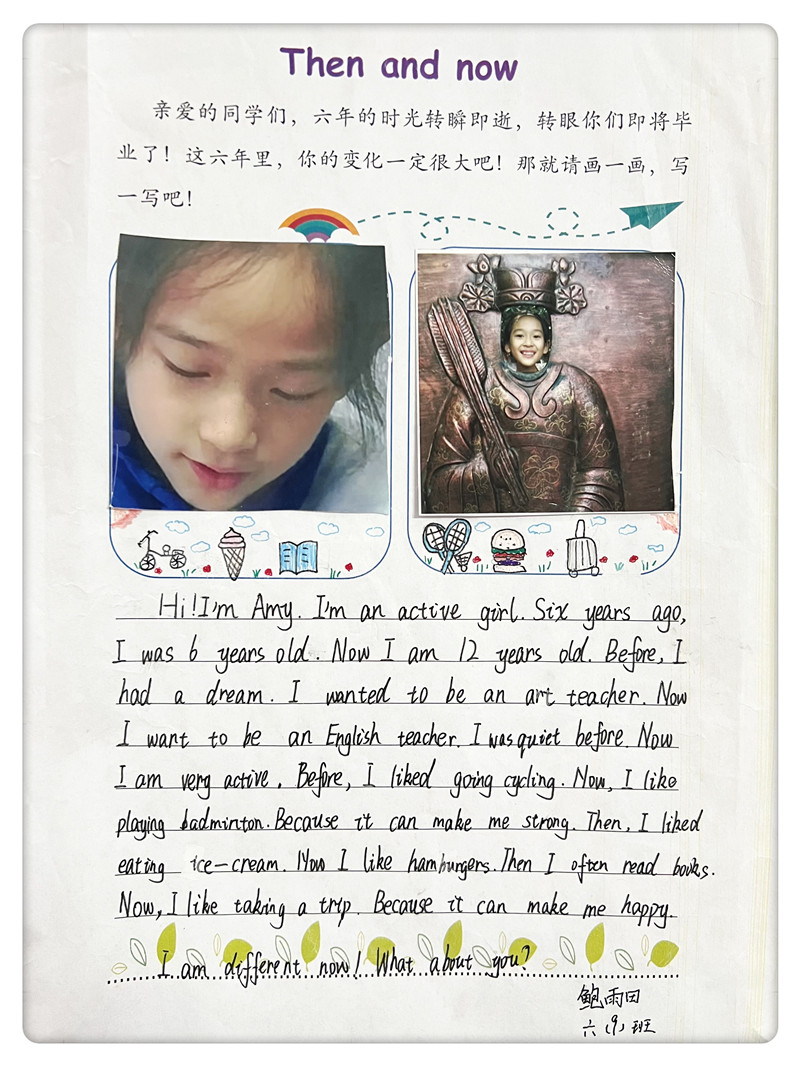 Then and now
亲爱的同学们，六年的时光转瞬即逝，转眼你们即将毕
业了！这六年里，你的变化一定很大吧！那就请画一画，写
一写吧！
Hi! I'm Amy. I'm an active girl. Six years ago,
I was 6 years old. Now I am 12 years old. Before, I
had a dream. I wanted to be an art teacher. Now
I want to be an English teacher. I was quiet before. Now
I am very active. Before, I liked going cycling. Now, I like
playing badminton. Because it can make me strong. Then, I liked
eating ice-cream. Now I like hamburgers. Then I often read books.
Now, I like taking a trip. Because it can make me happy.
I am different now! What about you?
鲍雨田
六（9）班